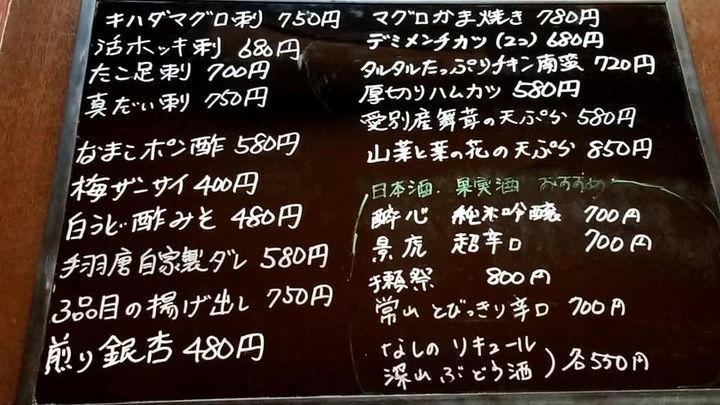 キハダマグロ刺 750円
活ホッキ刺 680円
たこ足刺 700円
真だい刺 750円
なまこポン酢 580円
梅ザーサイ 400円
白うど酢みそ 480円
手羽唐自家製ダレ 580円
3品目の揚げ出し 750円
煎り銀杏 480円
マグロかま焼き 780円
デミメンチカツ(2コ) 680円
タルタルたっぷりチキン南蛮 720円
厚切りハムカツ 580円
愛別産舞茸の天ぷら 580円
山菜と菜の花の天ぷら 850円
日本酒・果実酒 おすすめ
酔心 純米吟醸 700円
景虎 超辛口 700円
獺祭 800円
常山 とびっきり辛口 700円
なしのリキュール
深山ぶどう酒 ) 各550円